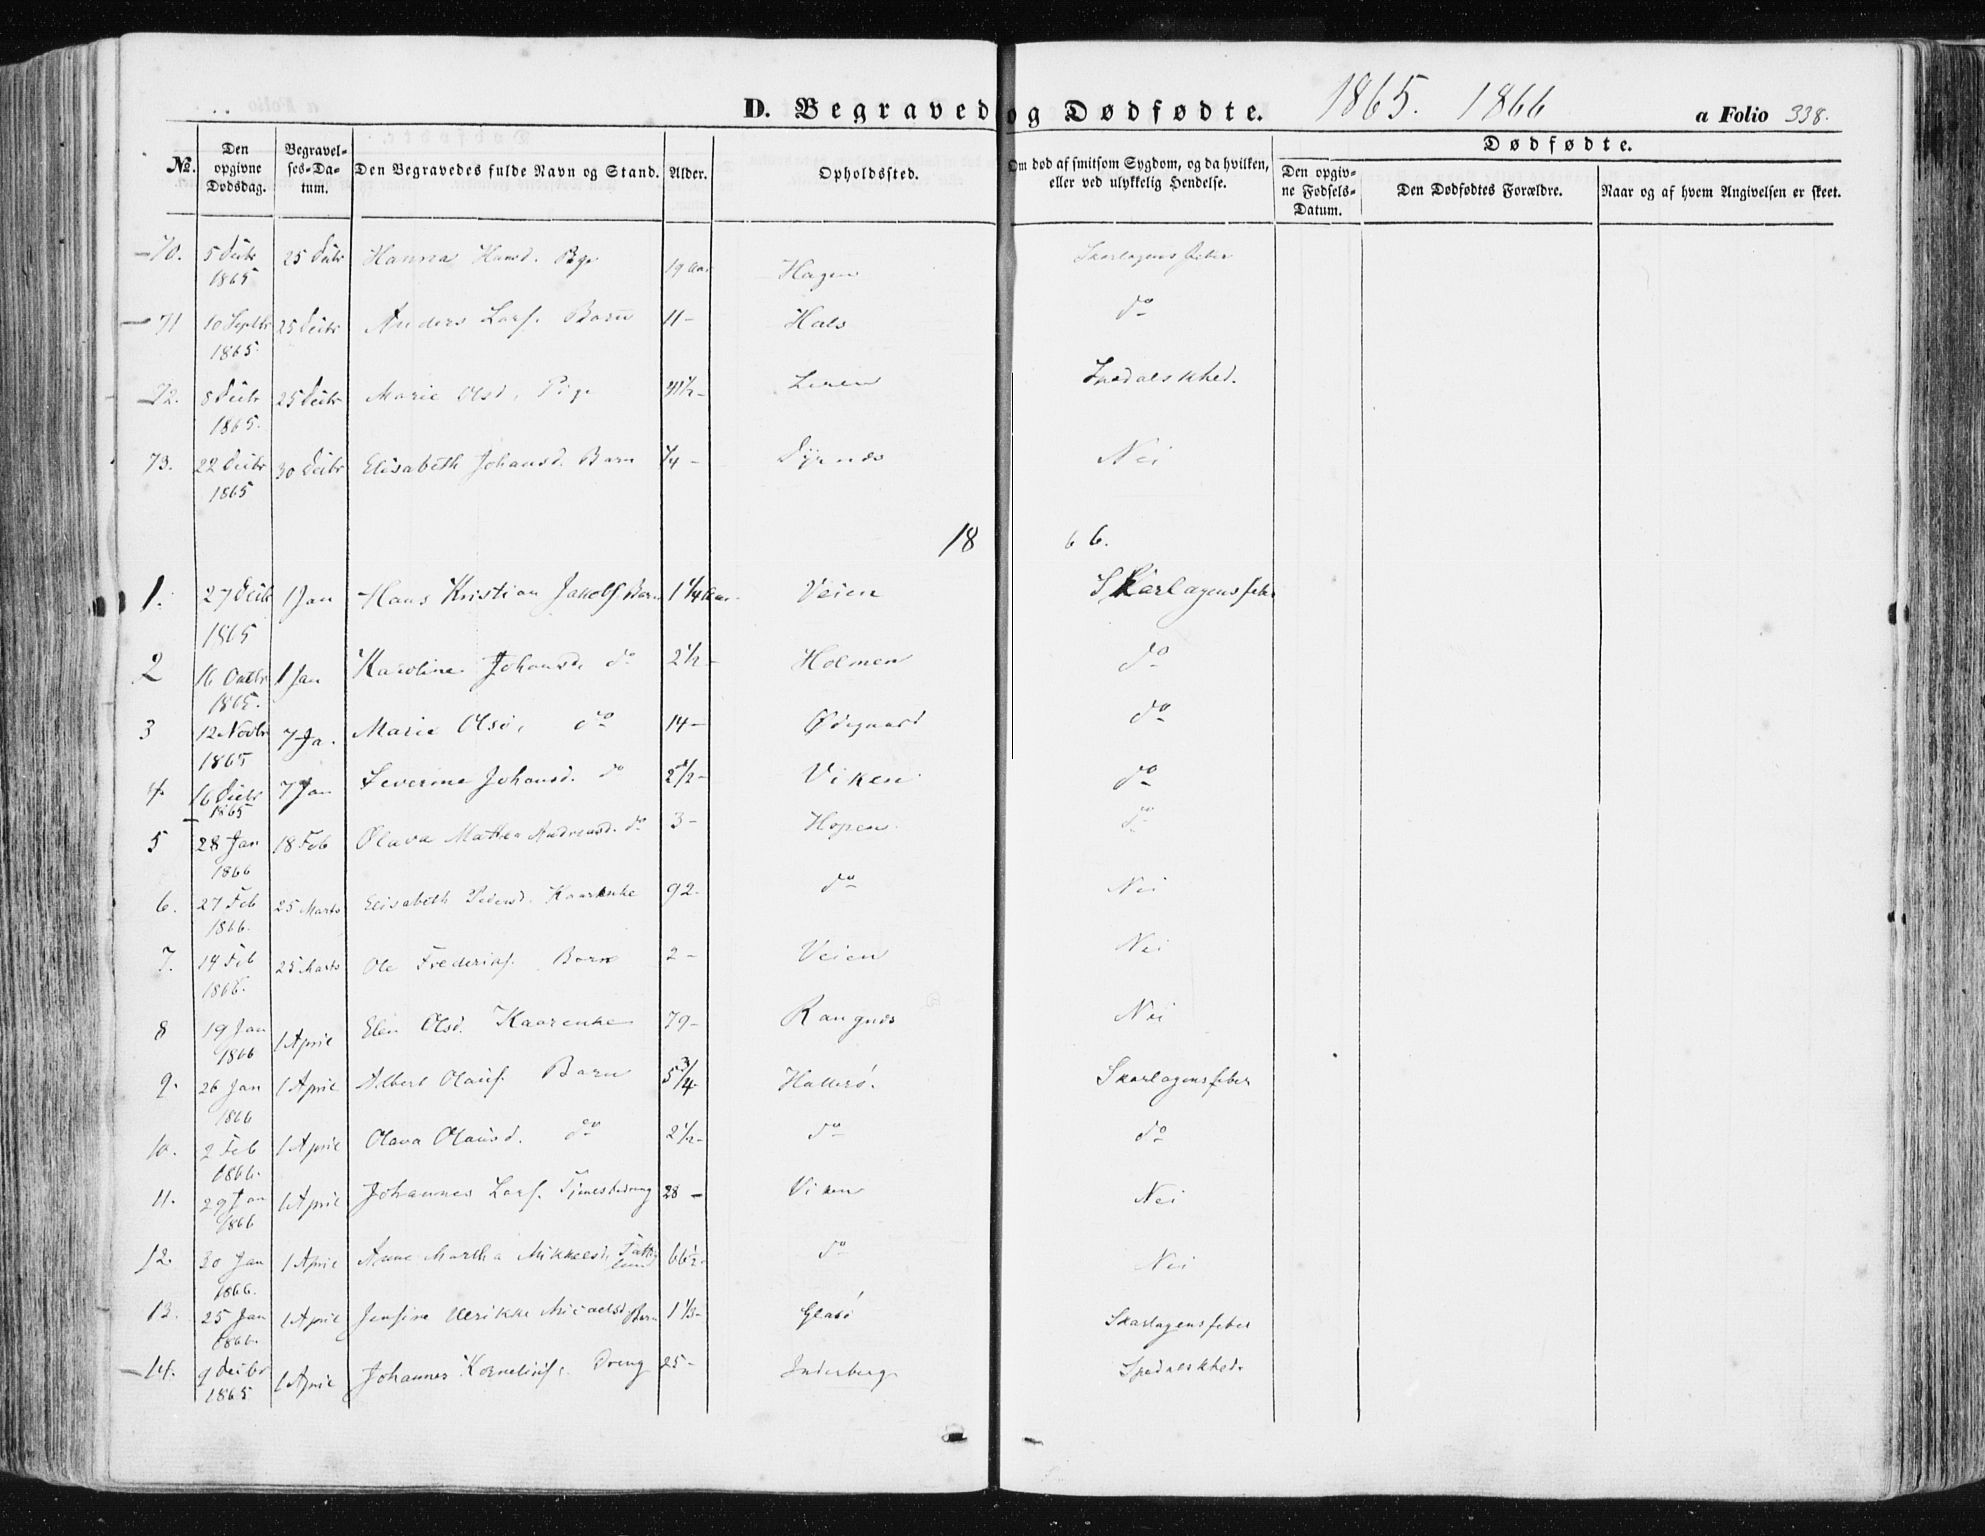 D. Begravede og Dødfødte. 1865. 1866 a Folio 338.
No. Den opgivne Dødsdag. Begravelses-Datum. Den Begravedes fulde Navn og Stand. Alder. Opholdssted. Om død af smitsom Sygdom, og da hvilken, eller ved ulykkelig Hendelse. Dødfødte.
Den opgivne Fødsels-Datum. Den Dødfødtes Forældre. Naar og af hvem Angivelsen er skeet.
70. 5 Decbr 1865 25 Decbr Hanna Hansd. Pige 19 Aar Hagen Skarlagensfeber
71 10 Septbr 1865. 25 Decbr Anders Larss. Barn 11 - Hals do
72. 8 Decbr 1865. 25 Decbr Marie Olsd. Pige 41½ - Leren Spedalskhed.
73. 22 Decbr 1865 30 Decbr Elisabeth Johansd. Barn ¼ - Dyrnæs Nei
1866.
1. 27 Decbr 1865 1 Jan Hans Kristian Jakobs. Barn 1¼ Aar Veien Skarlagensfeber
2 16 Octbr 1865. 1 Jan Karoline Johansd. do 2½ - Holmen do
3 12 Novbr 1865 7 Ja. Marie Olsd. do 14 - Ødegaard do
4. 16 Decbr 1865 7 Jan Severine Johansd. do 2½ - Viken do
5 28 Jan 1866 18 Feb Olava Mathea Andreasd. do 3 - Hopen do
6. 27 Feb 1866. 25 Marts Elisabeth Pedersd. Kaarenke 92 - do Nei
7. 14 Feb 1866. 25 Marts Ole Frederiks. Barn 2 - Veien Nei
8 19 Jan 1866 1 April Elen Olsd. Kaarenke 79 - Rangnæs Nei
9. 26 Jan 1866 1 April Albert Olaus. Barn 5¾ Hallerø. Skarlagensfeber
10. 2 Feb 1866. 1 April Olava Olausd. do 2½ - do do
11. 29 Jan 1866 1 April Johannes Larss. Tjenestedreng 28 - Viken Nei
12. 30 Jan 1866. 1 April Anne Martha Mikkelsd. Fattiglem 66½ - do Nei
13. 25 Jan 1866. 1 April Jensine Ulrikke Micaelsd. Barn 1⅓ - Glasø Skarlagensfeber
14. 9 Decbr 1865 1 April Johannes Kornelius. Dreng 25 - Inderberg Spedalskhed.